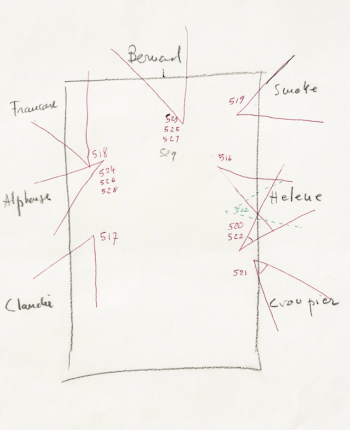 Bernard
Smoke
519
Francoise
523
525
527
529
518
524
526
528
516
Alphonse
Helene
522
520
522
517
521
Claudie
Croupier